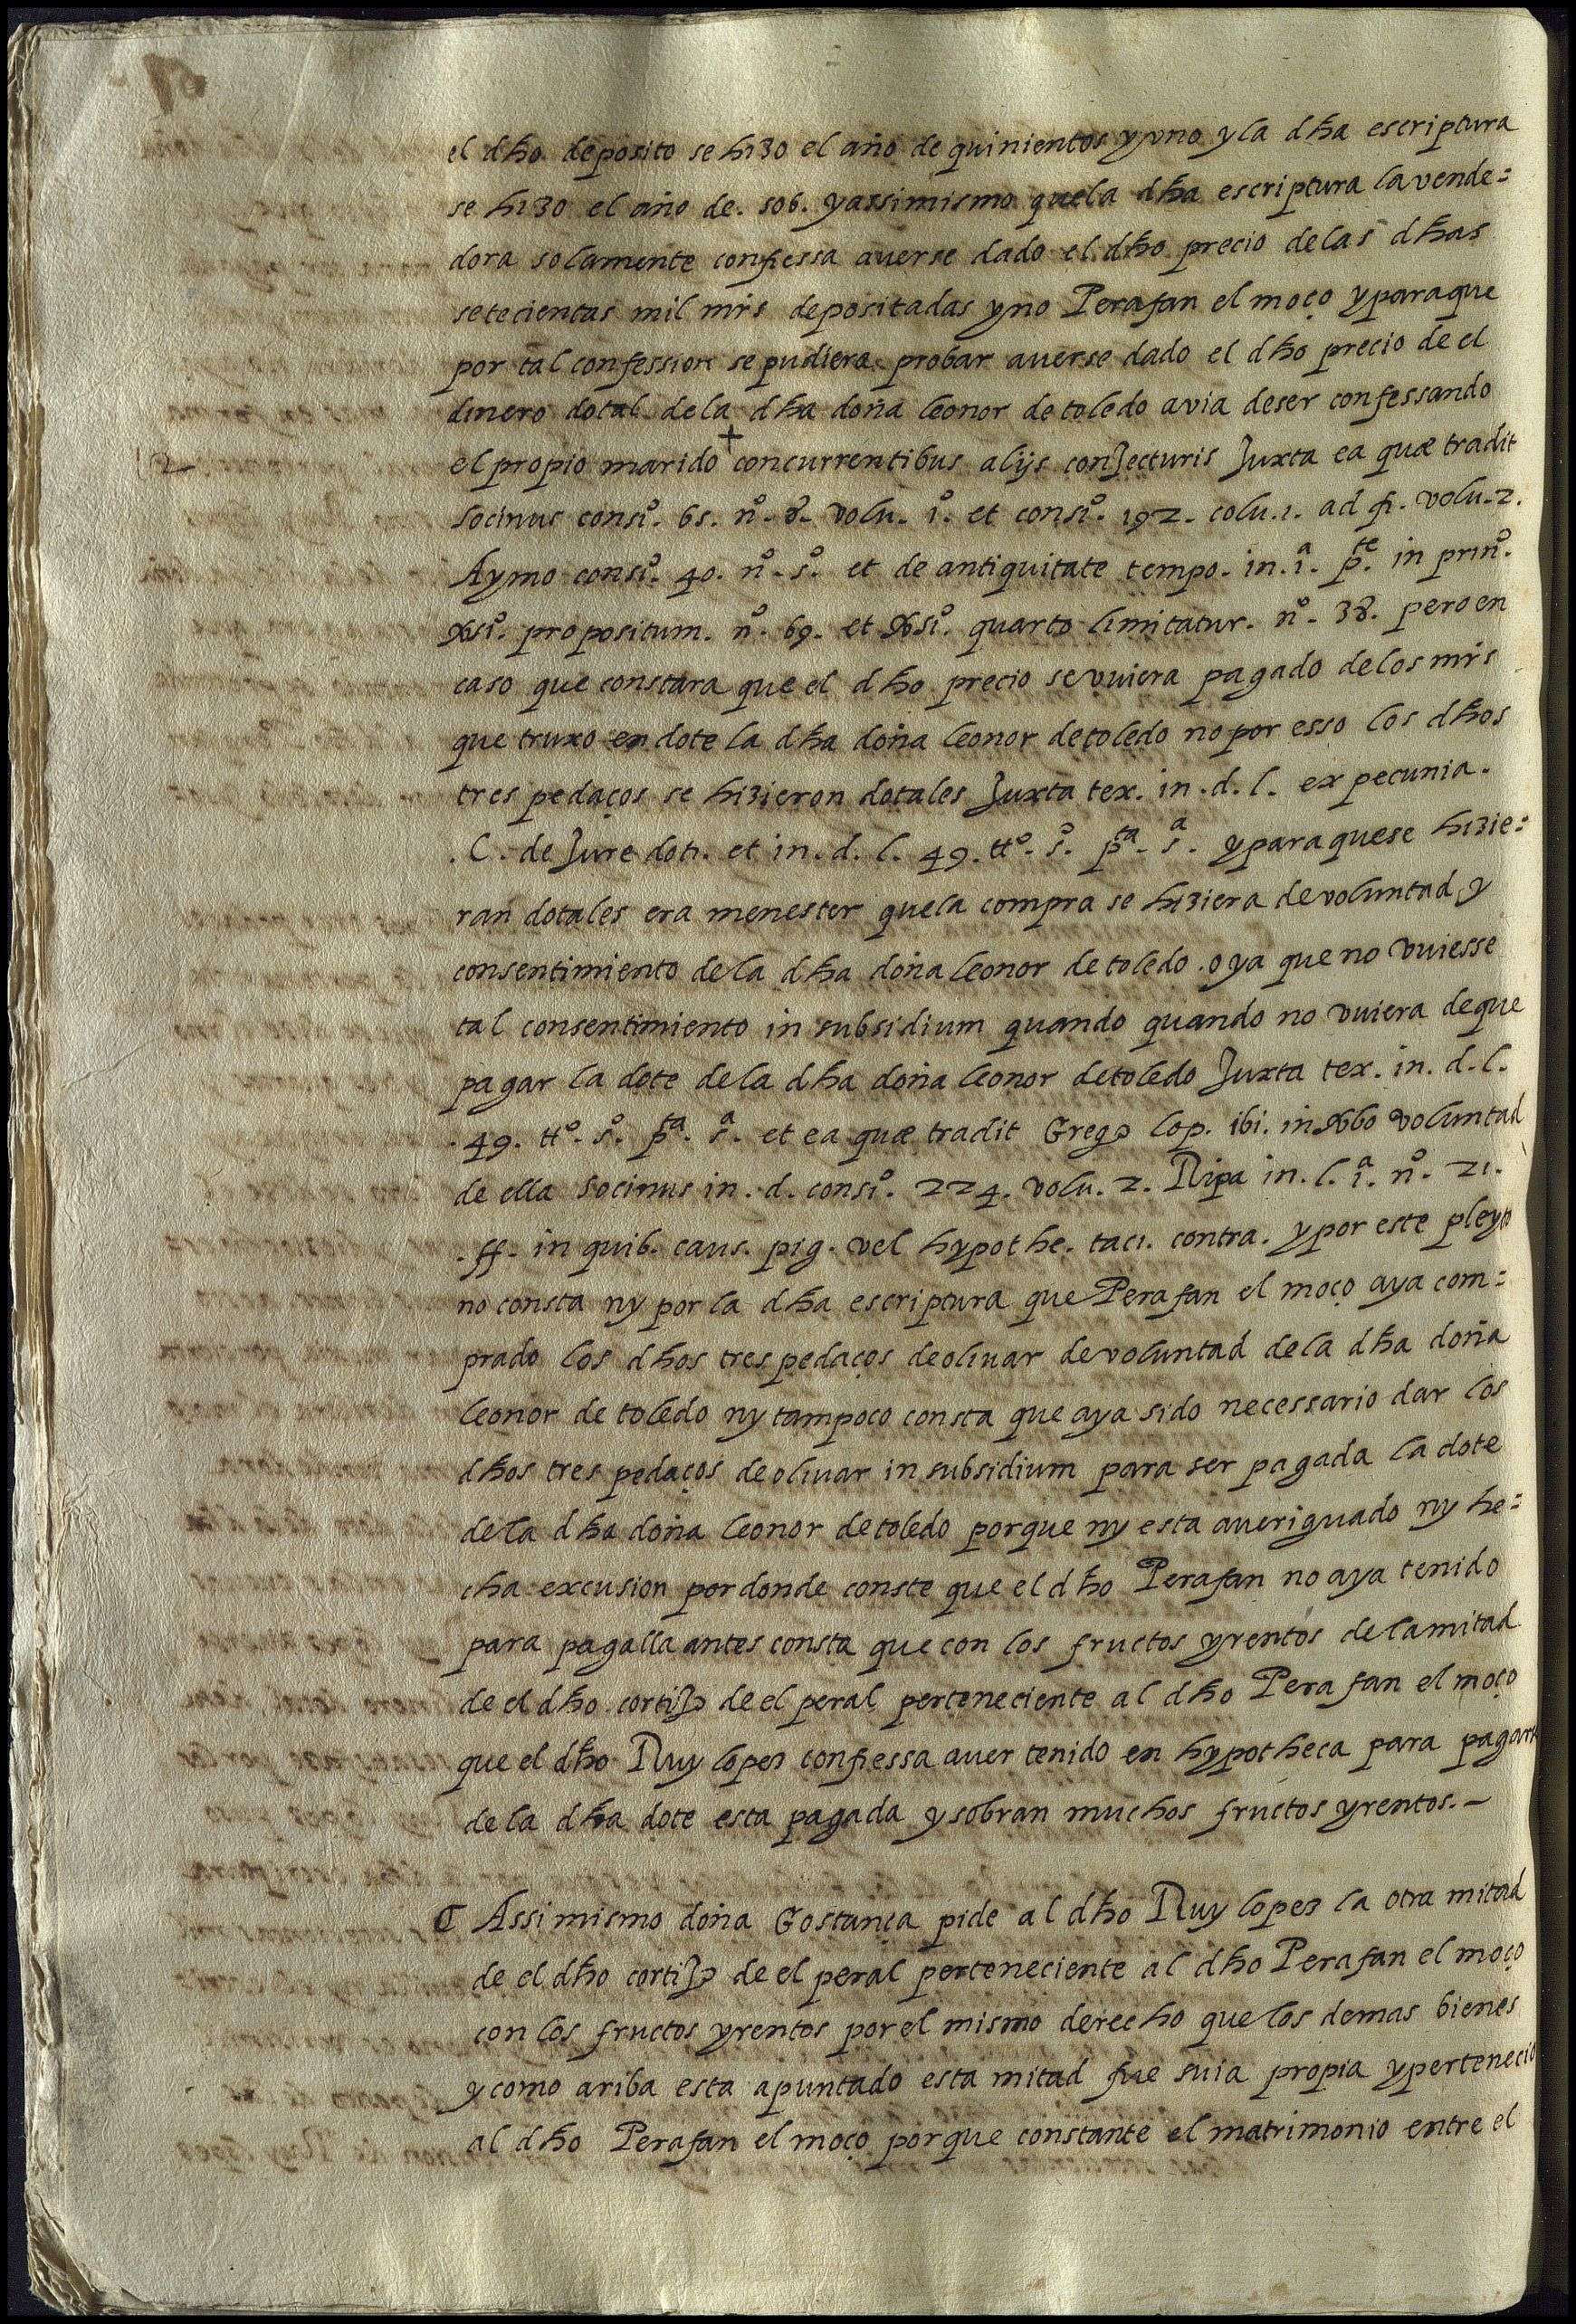 el dho deposito se hizo el año de quinientos y vno y la dha escriptura
se hizo el año de. 506. y assimismo que la dha escriptura la vende=
dora solamente confiessa auerse dado el dho precio de las dhas
setecientas mil mrs depositadas y no Perafan el moço y para que
por tal confession se pudiera probar auerse dado el dho precio de el
dinero dotal de la dha doña leonor de toledo avia de ser confessando
el propio marido + concurrentibus alijs conJecturis Juxta ea quæ tradit
socinus consi͛o. 65. nº. 8. volu. 1º. et consiº. 192. colu. 1. ad fi. volu. 2.
Aymo consiº. 40. nº. 5º. et de antiquitate tempo. in. 1ª. pte. in prinº.
versiº. propositum. nº. 69. et versiº. quarto limitatur. nº. 38. pero en
caso que constara que el dho precio se vuiera pagado de los mrs
que truxo en dote la dha doña leonor de toledo no por esso los dhos
tres pedaços se hizieron dotales Juxta tex. in. d. l. ex pecunia.
.C. de Jure doti. et in. d. l. 49. ttº. 5º. pta. 5ª. y para que se hizie=
ran dotales era menester que la compra se hiziera de voluntad y
consentimiento de la dha doña leonor de toledo. o ya que no vuiesse
tal consentimiento in subsidium quando quando no vuiera de que
pagar la dote de la dha doña leonor de toledo Juxta tex. in. d. l.
.49. ttº. 5º. pta. 5ª. et ea quæ tradit Grego lop. ibi. in verbo voluntad
de ella socinus in. d. consiº. 224. volu. 2. Ripa in. l. 1ª. nº. 21.
.ff. in quib. caus. pig. vel hypothe. taci. contra. y por este pleyto
no consta ny por la dha escriptura que Perafan el moço aya com=
prado los dhos tres pedaços de oliuar de voluntad de la dha doña
leonor de toledo ny tampoco consta que aya sido necessario dar los
dhos tres pedaços de oliuar in subsidium para ser pagada la dote
de la dha doña leonor de toledo porque ny esta aueriguado ny he=
cha excusion por donde conste que el dho Perafan no aya tenido
para pagalla antes consta que con los fructos y rentos de la mitad
de el dho cortiJo de el peral perteneciente al dho Perafan el moço
que el dho Ruy lopez confiessa auer tenido en hypotheca para pagarse
de la dha dote esta pagada y sobran muchos fructos y rentos. –
₵ Assimismo doña Gostança pide al dho Ruy lopez la otra mitad
de el dho cortiJo de el peral perteneciente al dho Perafan el moço
con los fructos y rentos por el mismo derecho que los demas bienes
y como ariba esta apuntado esta mitad fue suia propia y pertenecio
al dho Perafan el moço porque constante el matrimonio entre el